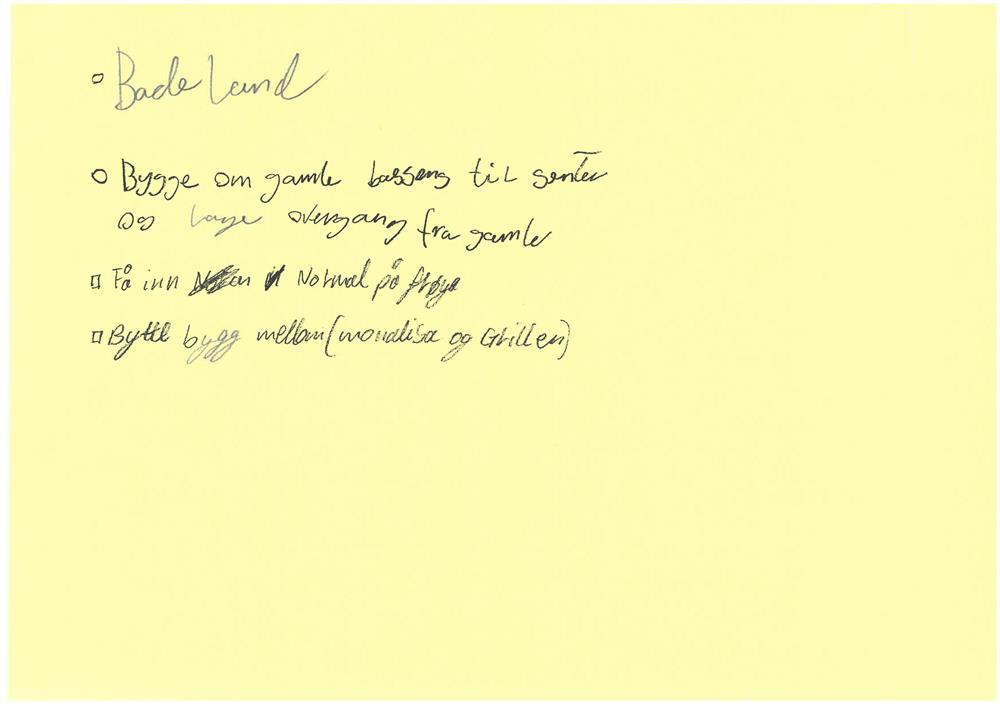 Bade land
Bygge om gamle basseng til senter
og lage overgang fra gamle
Få inn Normal på frøya
Bytte bygg mellom (monalisa og Grillen)